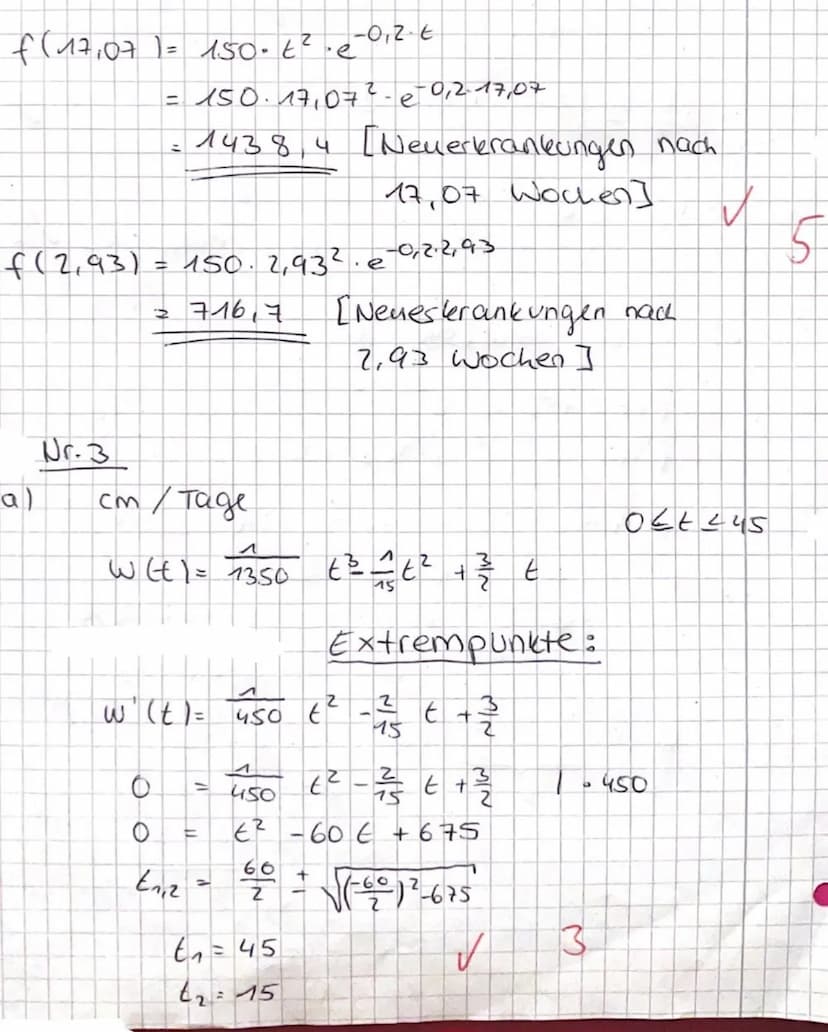 f(17,07) = 150 · t² · e^(-0,2·t)
= 150 · 17,07² · e^(-0,2·17,07)
= 1438,4 [Neuerkrankungen nach
17,07 Wochen]
✓ 5
f(2,93) = 150 · 2,93² · e^(-0,2·2,93)
= 716,7 [Neuerkrankungen nach
2,93 Wochen]
Nr. 3
a) cm / Tage
0 ≤ t ≤ 45
w(t) = 1/1350 t³ - 1/15 t² + 3/2 t
Extrempunkte:
w'(t) = 1/450 t² - 2/15 t + 3/2
0 = 1/450 t² - 2/15 t + 3/2 | · 450
0 = t² - 60t + 675
t₁,₂ = 60/2 ± √((-60/2)² - 675)
t₁ = 45
✓ 3
t₂ = 15